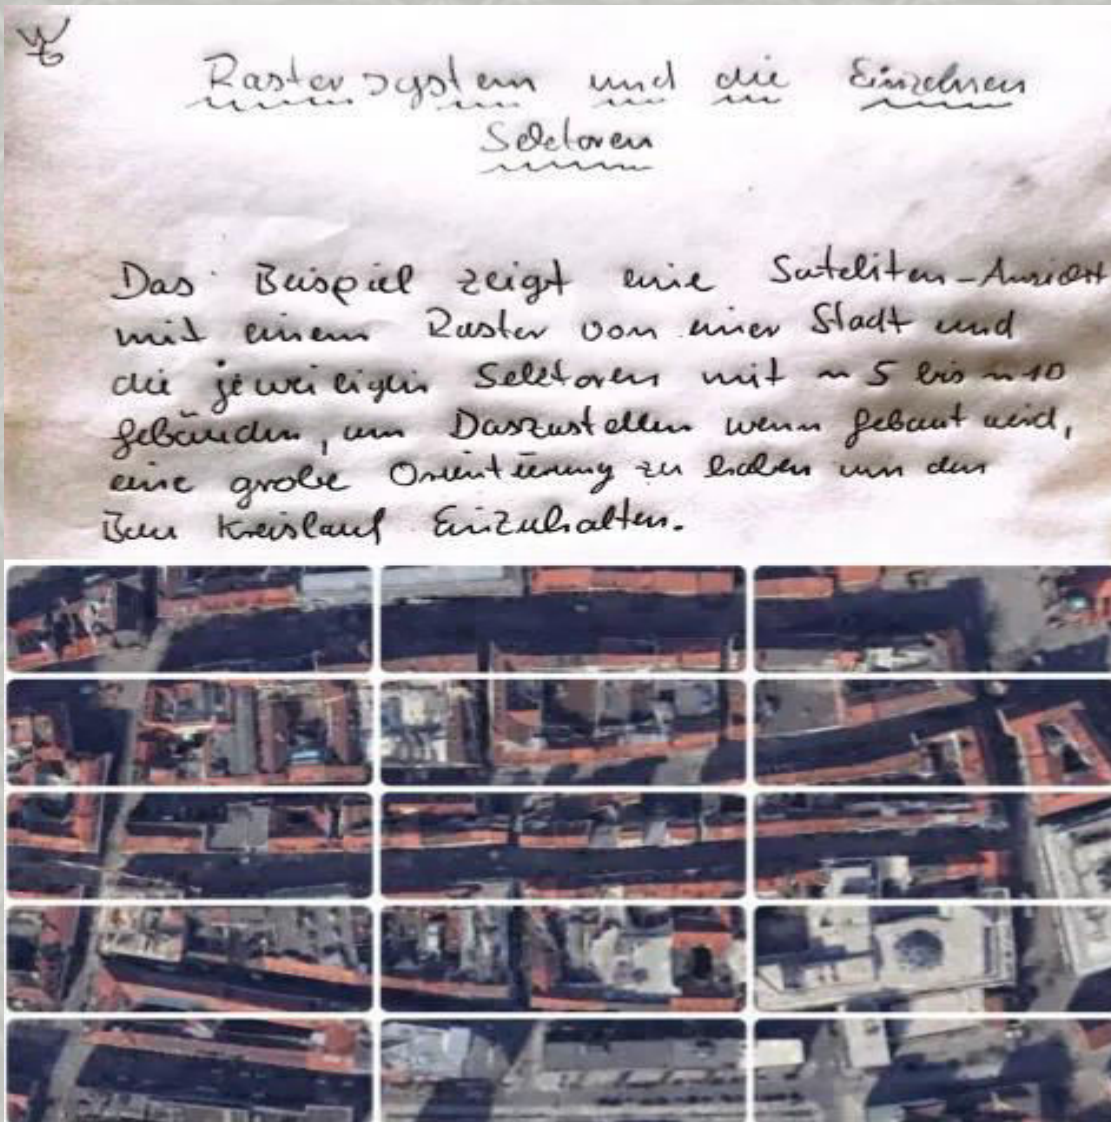 Rastersystem und die Einzelnen
Sektoren
Das Beispiel zeigt eine Sateliten-Ansicht
mit einem Raster von einer Stadt und
die jeweiligin Sektoren mit ~ 5 bis ~ 10
gebäuden, um Daszustellen wenn gebaut wird,
eine grobe Orientierung zu haben um den
Bau Kreislauf Einzuhalten.